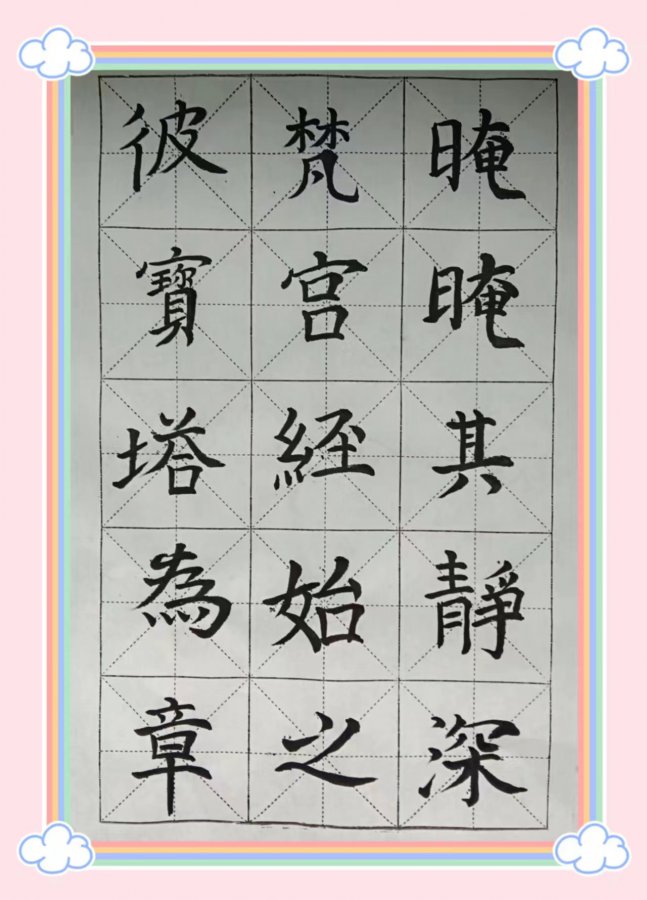 彼寶塔為章
梵宫經始之
晻晻其靜深